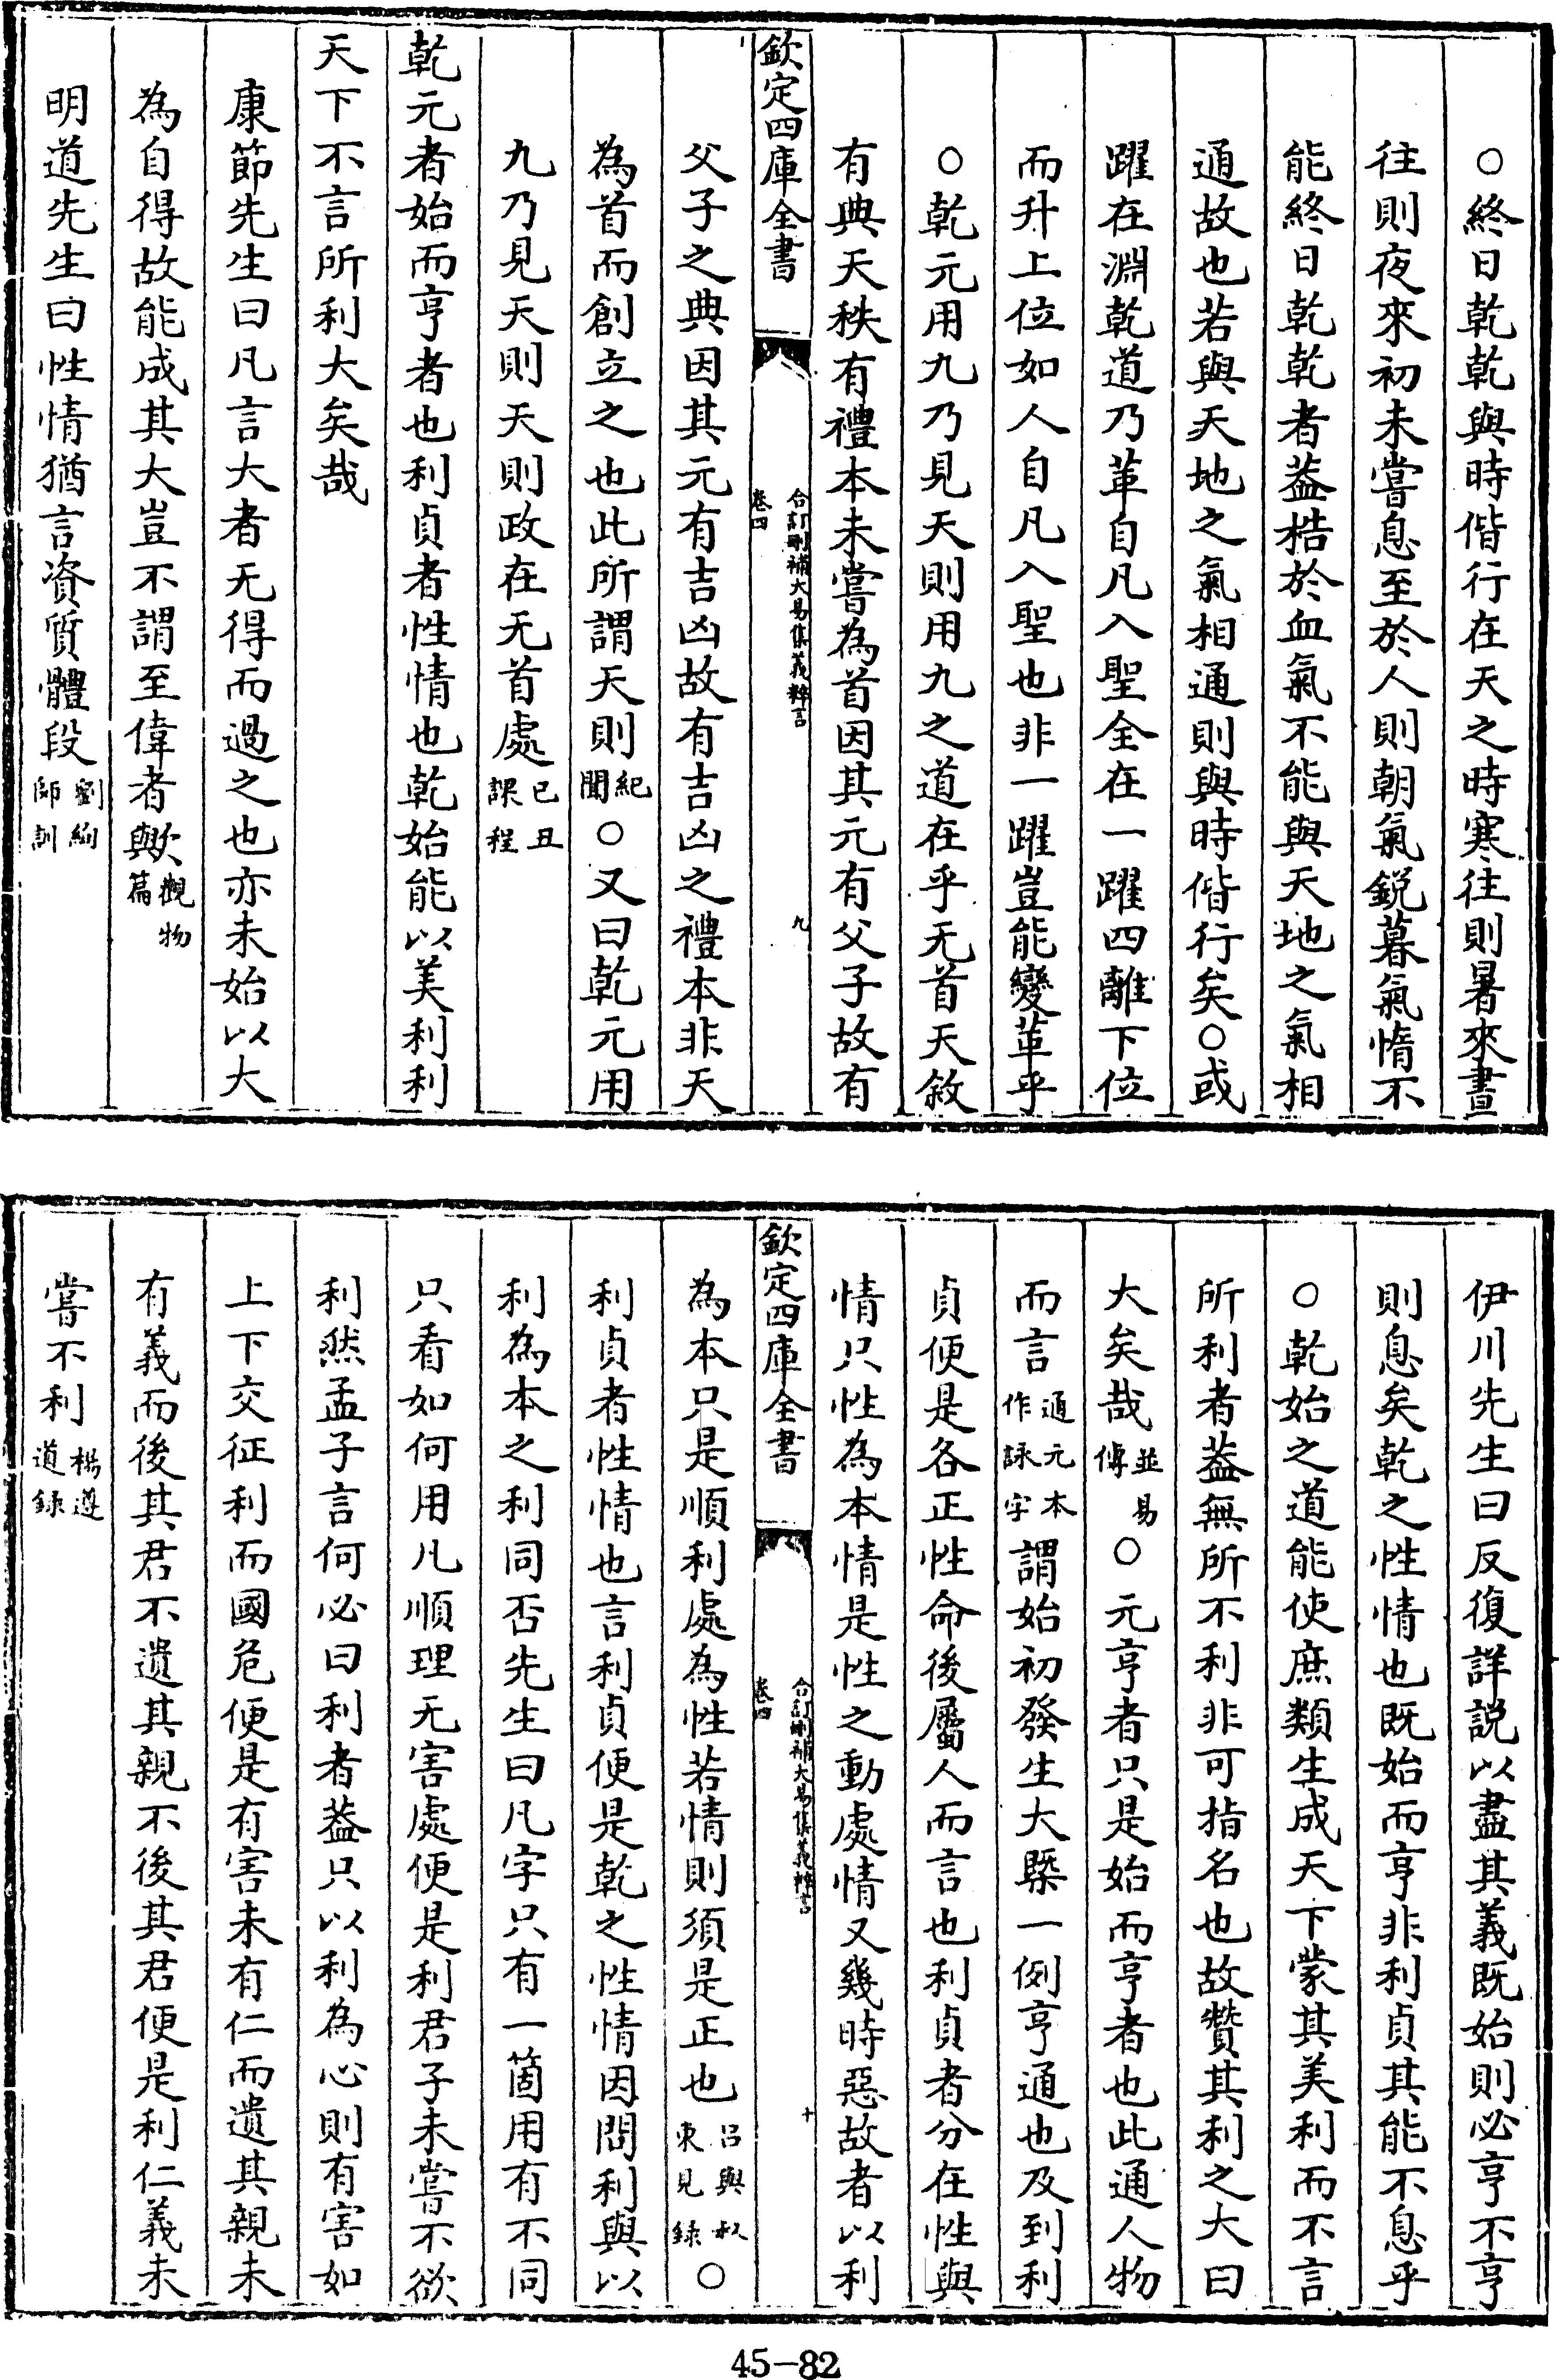 ○終日乾乾與時偕行在天之時寒往則暑來晝
往則夜來初未嘗息至於人則朝氣銳暮氣惰不
能終日乾乾者蓋梏於血氣不能與天地之氣相
通故也若與天地之氣相通則與時偕行矣○或
躍在淵乾道乃革自凡入聖全在一躍四離下位
而升上位如人自凡入聖也非一躍豈能變革乎
○乾元用九乃見天則用九之道在乎无首天敘
有典天秩有禮本未嘗為首因其元有父子故有
欽定四庫全書
合訂刪補大易集義粹言
卷四
九
父子之典因其元有吉凶故有吉凶之禮本非天
為首而創立之也此所謂天則紀聞○又曰乾元用
九乃見天則天則政在无首處己丑課程
乾元者始而亨者也利貞者性情也乾始能以美利利
天下不言所利大矣哉
康節先生曰凡言大者无得而過之也亦未始以大
為自得故能成其大豈不謂至偉者歟觀物篇
明道先生曰性情猶言資質體段劉絢師訓
伊川先生曰反復詳說以盡其義既始則必亨不亨
則息矣乾之性情也既始而亨非利貞其能不息乎
○乾始之道能使庶類生成天下蒙其美利而不言
所利者蓋無所不利非可指名也故贊其利之大曰
大矣哉並易傳○元亨者只是始而亨者也此通人物
而言通元本作詠字謂始初發生大槩一例亨通也及到利
貞便是各正性命後屬人而言也利貞者分在性與
情只性為本情是性之動處情又幾時惡故者以利
欽定四庫全書
合訂刪補大易集義粹言
卷四
十
為本只是順利處為性若情則須是正也呂與叔東見錄○
利貞者性情也言利貞便是乾之性情因問利與以
利為本之利同否先生曰凡字只有一箇用有不同
只看如何用凡順理无害處便是利君子未嘗不欲
利然孟子言何必曰利者蓋只以利為心則有害如
上下交征利而國危便是有害未有仁而遺其親未
有義而後其君不遺其親不後其君便是利仁義未
嘗不利楊遵道錄
45-82